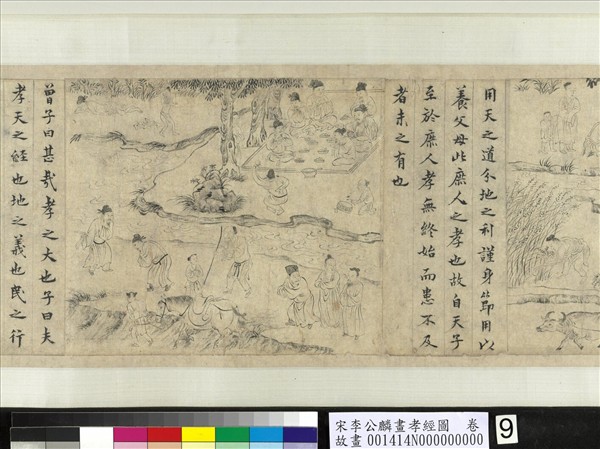 用天之道分地之利謹身節用以
養父母此庶人之孝也故自天子
至於庶人孝無終始而患不及
者未之有也
曾子曰甚哉孝之大也子曰夫
孝天之經也地之義也民之行
宋李公麟畫孝經圖 卷
故畫 001414N000000000
9